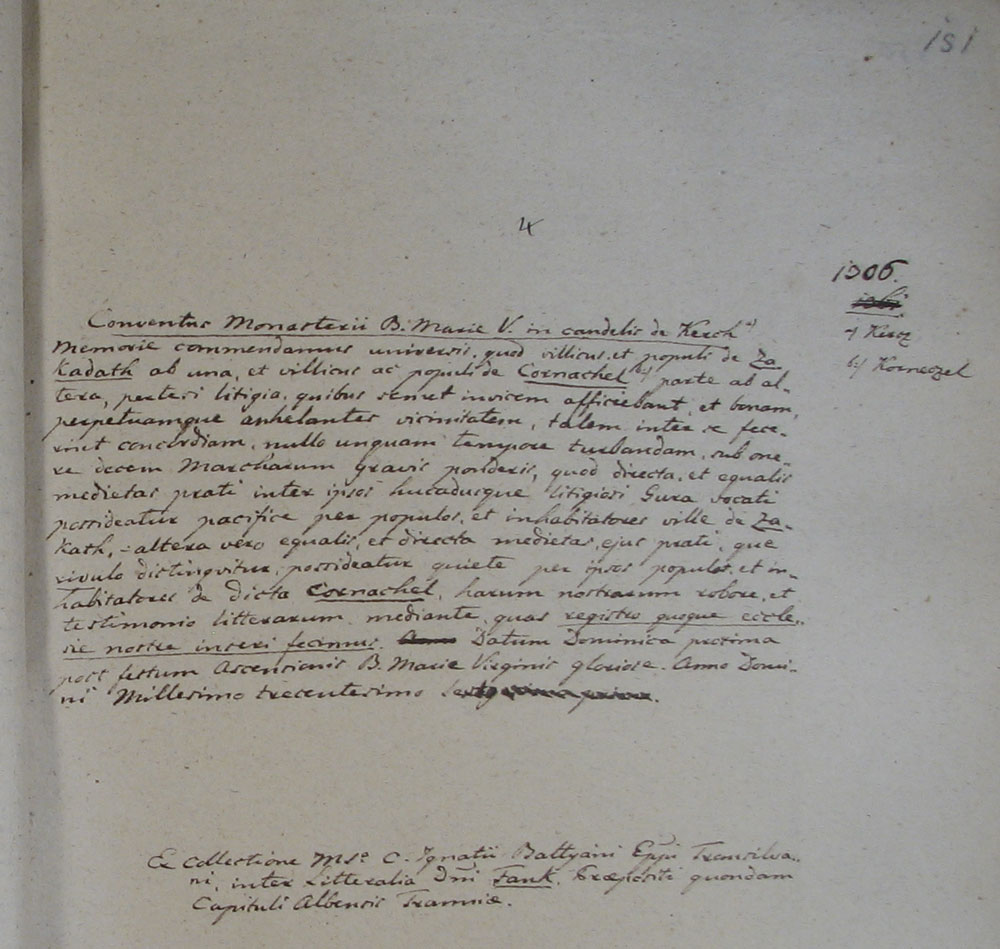 151
4
1306.
a) Kercz
b) Korneczel
Conventus Monasterii B. Marie V. in candelis de Kerch a)
Memorie commendamus universis, quod villicus, et populi de Za-
kadath ab una, et villicus ac populi de Cornachel b) parte ab al-
tera, pertesi litigia, quibus semet invicem afficiebant, et bonam,
perpetuamque anhelantes vicinitatem, talem inter se fece-
rint concordiam, nullo unquam tempore turbandam, sub one-
re decem Marcharum gravis ponderis, quod directa, et equalis
medietas prati inter ipsos hucadusque litigiosi Gura vocati
possideatur pacifice per populos, et inhabitatores ville de Za-
kath, altera vero equalis, et directa medietas, ejus prati, que
rivulo distinguitur, possideatur quiete per ipsos populos, et in-
habitatores de dicta Cornachel, harum nostrarum robore, et
testimonio litterarum mediante, quas registro quoque eccle-
sie nostre inseri fecimus. Datum Dominica proxima
post festum Ascensionis B. Marie Virginis gloriose. Anno Domi-
ni Millesimo trecentesimo sexto
Ex Collectione Mss. C. Ignatii Battyáni Eppi Transilva-
ni, inter Litteralia Dni Fank. Præpositi quondam
Capituli Albensis Tranniæ.